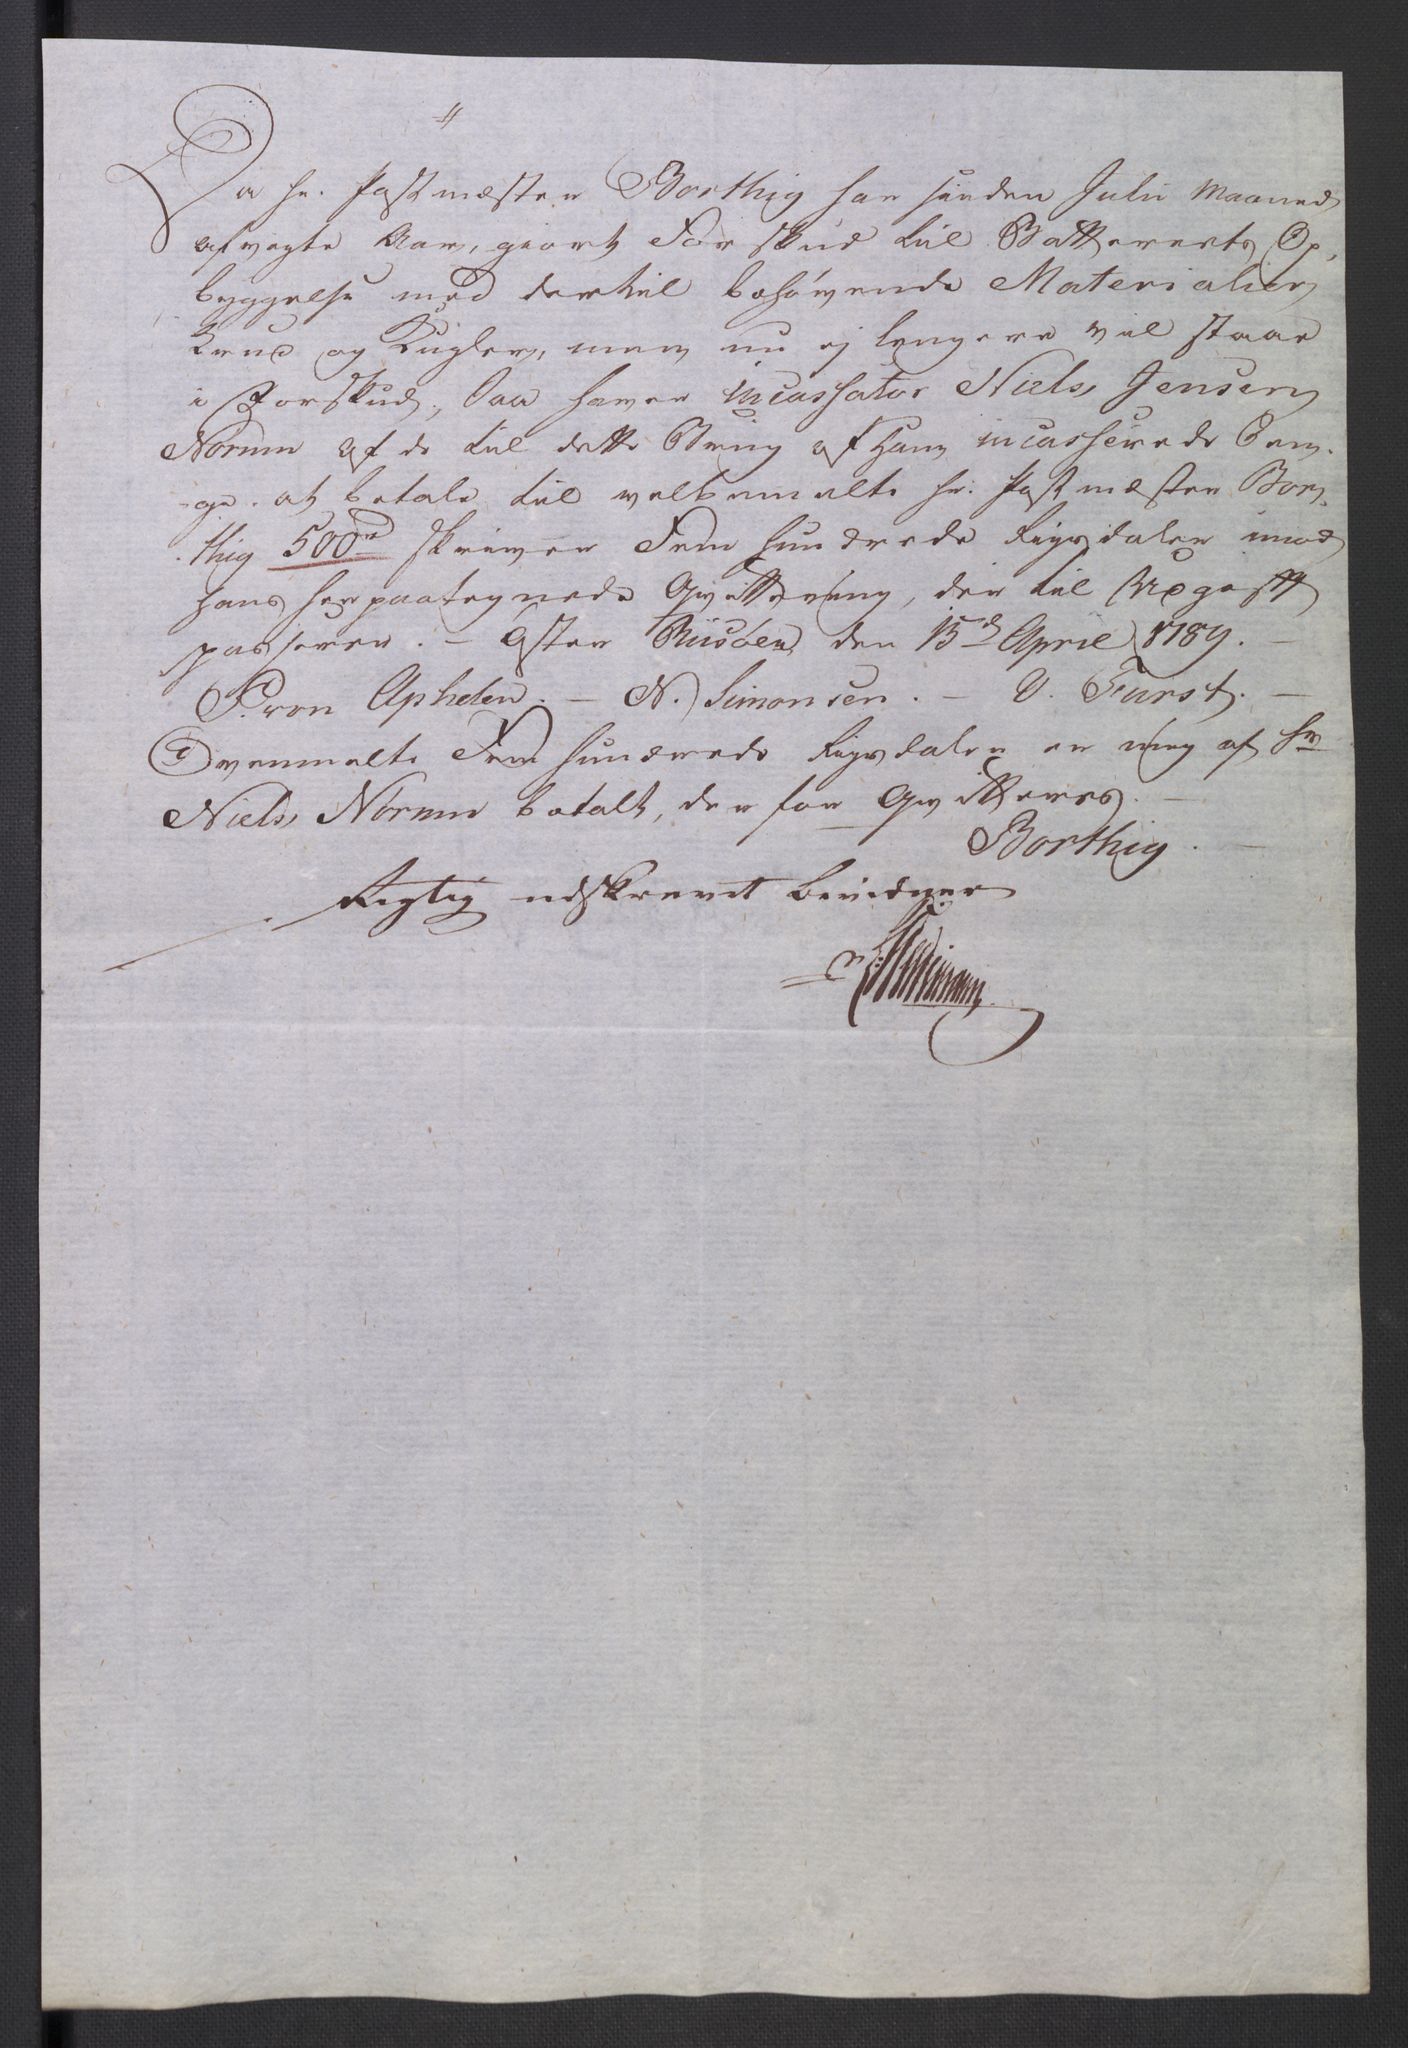 Da hr. Postmester Borthig har siden Julii Maaned
afvigte Aar, giort Forskud til Batteriets Op,
byggelse med dertil behövende Materialier
Krud og Kugler, men nu ej lengere vil staae
i Forskud, Saa haver incassator Niels Jensen
Normn af de til dette Brug af Ham incasserede Pen,
ge. at betale til velbemelte hr. Postmester Bor,
thig 500rd skriver Fem Hundrede Rigsdaler imod
hans herpaategnede Qvittering, der til Udgift
passerer. - Öster Riisöer den 15de April 1789. -
P. von Aphelen. - N. Simonsen. - U. Furst. -
Ovenmelte Fem Hundrede Rigsdaler er mig af Hr
Niels Normn betalt, derfor Qvitteres. -
Borthig. -
Rigtig udskrevet bevidner